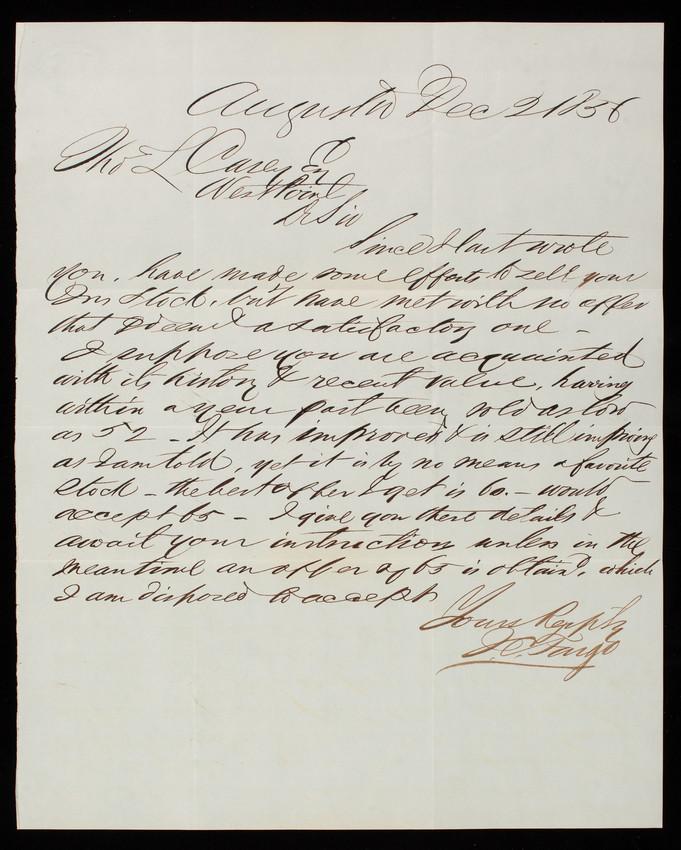 Augusta Dec 2 1856
Tho L Casey Eq
West Point
Dr Sir
Since I last wrote
you, have made some efforts to sell your
Ins Stock, but have met with no offer
that I deemd a satisfactory one -
I suppose you are acquainted
with its history & recent value, having
within a year past been sold as low
as 52 - It has improved & is still improving
as I am told, yet it is by no means a favorite
Stock - the best offer I get is 60. - would
accept 65 - I give you these details &
await your instruction unless in the
meantime an offer of 65 is obtaind, which
I am disposed to accept
Yours Respfly
Fargo